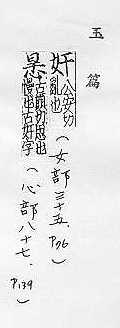 玉篇
奸 公安切亂也（女部三十五、P76）
古顔切也慢也古奸字（心部八十七、P139）